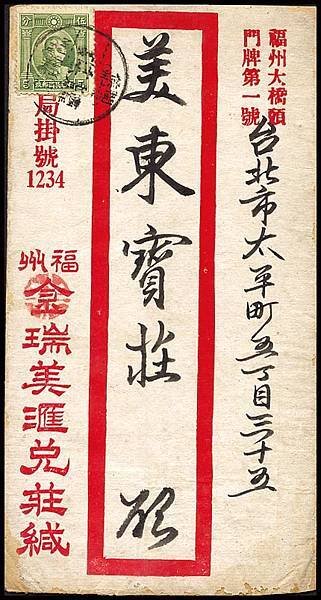 福州大橋頭
門牌第一號
台北市太平町五丁目三十五
美東寶莊 啟
分 伍
5 5
局掛號
1234
福州
瑞美滙兌莊緘